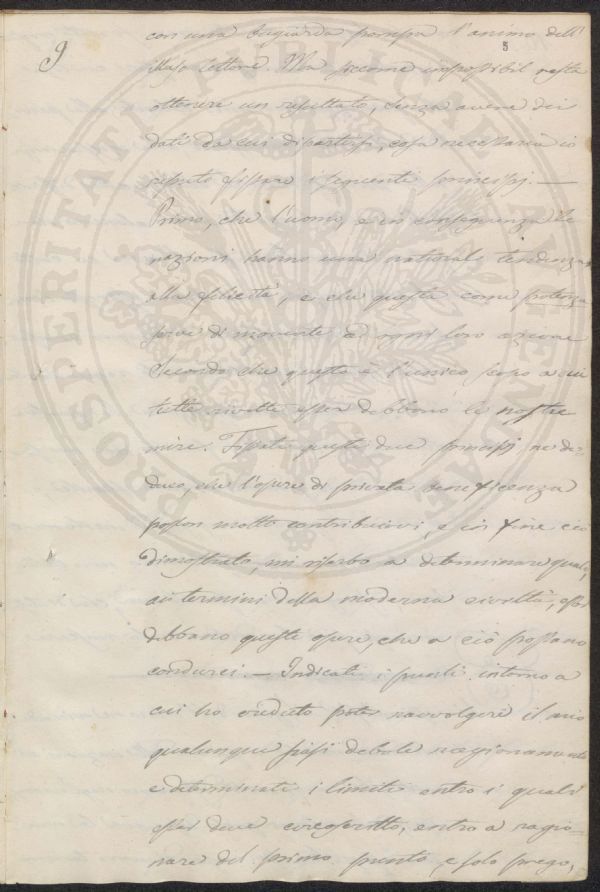 9
5
con una bugiarda pompa l'animo dell'
illus.e lettore. Ma siccome impossibil resta
ottenere un resultato, senza avere dei
dati da cui dipartirsi, cosa necessaria io
reputo fissare i seguenti principj. —
Primo, che l'uomo, e in conseguenza le
nazioni hanno una natural tendenza
alla felicità, e che questa come potenza
serve di movente ad ogni loro azione
Secondo che questo è l'unico scopo a cui
tutte rivolte esser debbono le nostre
mire. Fissati questi due principj ne de-
duco, che l'opere di privata beneficenza
posson molto contribuirvi, e in fine ciò
dimostrato, mi riserbo a determinare quali,
ai termini della moderna civiltà, esser
debbano queste opere, che a ciò possano
condurci. — Indicati i punti intorno a
cui ho creduto poter ravvolgere il mio
qualunque siasi debole ragionamento
e determinati i limiti entro i quali
esser deve circoscritto, entro a ragio-
nare del primo punto, e solo prego,
PROSPERITATI PUBLICAE AUGENDAE